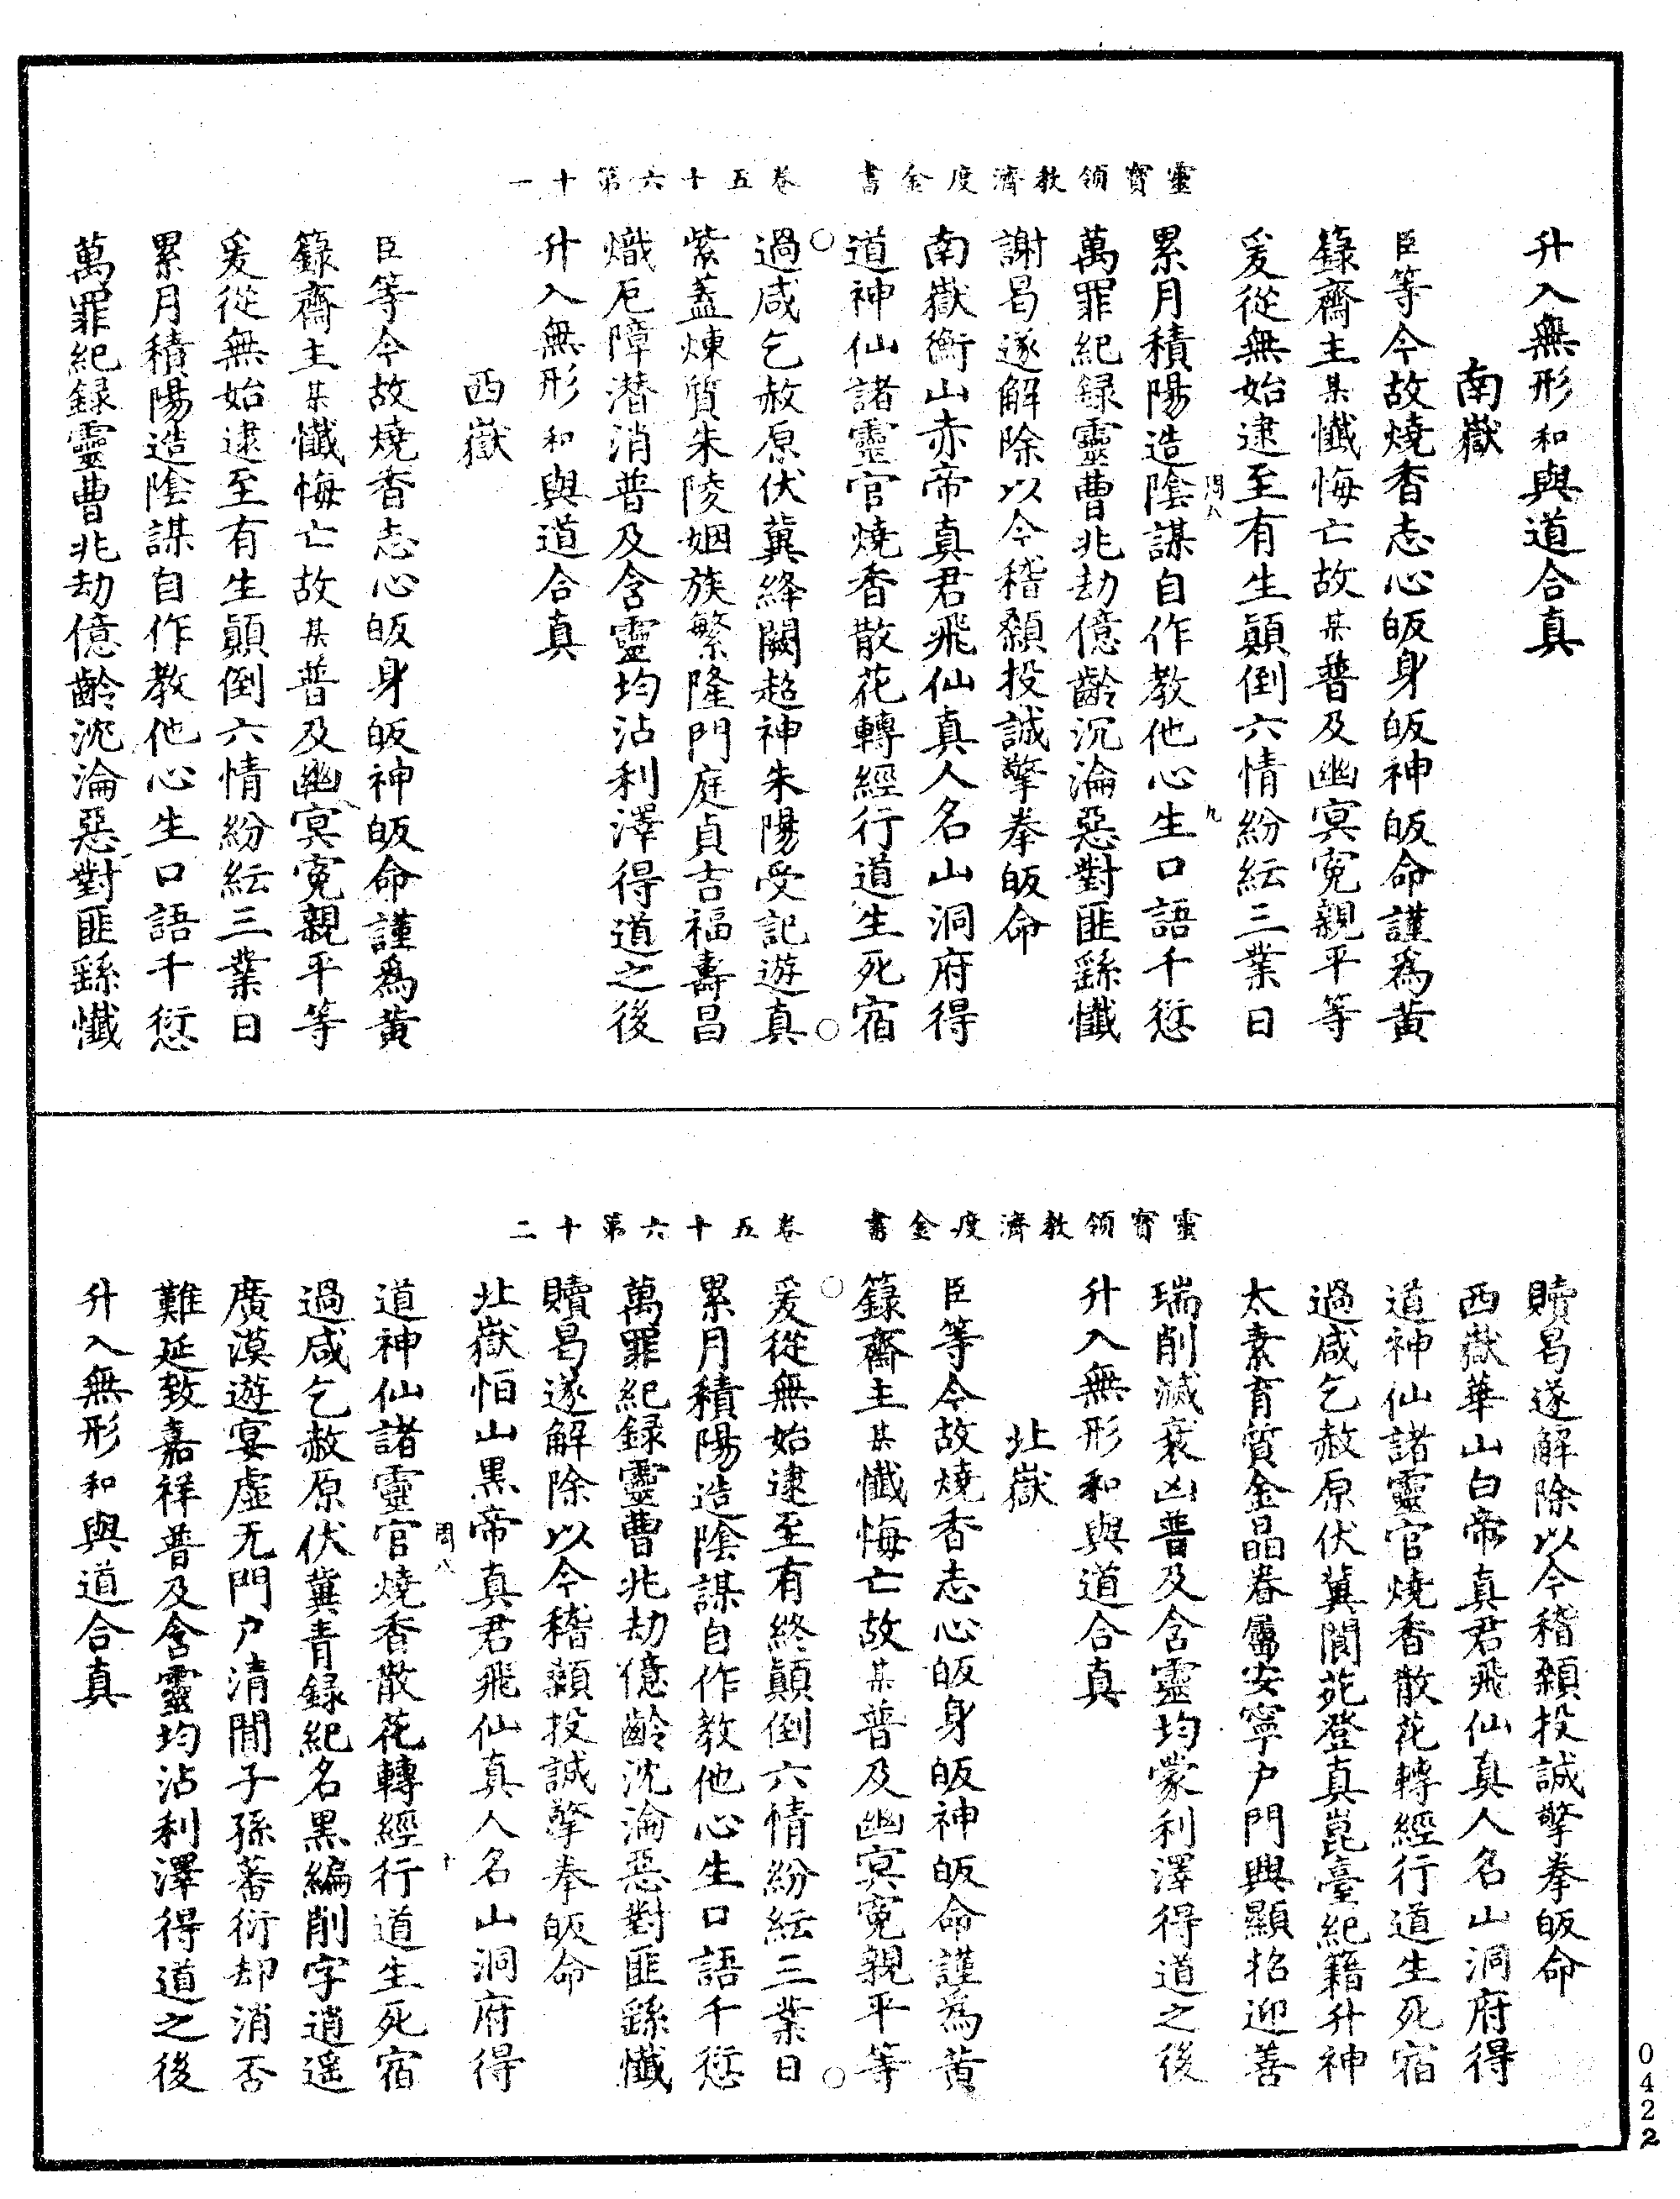 靈寶領教濟度金書 卷五十六第十一
升入無形和與道合真
南嶽
臣等今故燒香志心皈身皈神皈命謹爲黃
籙齋主某懺悔亡故某普及幽冥寃親平等
爰從無始逮至有生顛倒六情紛紜三業日
累月積陽造陰謀自作教他心生口語千愆
萬罪紀録靈曹兆劫億齡沉淪惡對匪繇懺
謝曷遂解除以今稽顙投誠擎拳皈命
南嶽衡山赤帝真君飛仙真人名山洞府得
道神仙諸靈官燒香散花轉經行道生死宿
過咸乞赦原伏兾絳闕超神朱陽受記遊真
紫蓋煉質朱陵姻族繁隆門庭貞吉福壽昌
熾厄障潜消普及含靈均沾利澤得道之後
升入無形和與道合真
西嶽
臣等今故燒香志心皈身皈神皈命謹爲黃
籙齋主某懺悔亡故某普及幽冥寃親平等
爰從無始逮至有生顛倒六情紛紜三業日
累月積陽造陰謀自作教他心生口語千愆
萬罪紀録靈曹兆劫億齡沈淪惡對匪繇懺
靈寶領教濟度金書 卷五十六第十二
贖曷遂解除以今稽顙投誠擎拳皈命
西嶽華山白帝真君飛仙真人名山洞府得
道神仙諸靈官燒香散花轉經行道生死宿
過咸乞赦原伏兾閬苑登真崑臺紀籍升神
太素育質金晶眷屬安寧户門興顯招迎善
瑞削滅衰凶普及含靈均蒙利澤得道之後
升入無形和與道合真
北嶽
臣等今故燒香志心皈身皈神皈命謹為黃
籙齋主某懺悔亡故某普及幽冥寃親平等
爰從無始逮至有終顛倒六情紛紜三業日
累月積陽造陰謀自作教他心生口語千愆
萬罪紀録靈曹兆劫億齡沈淪惡對匪繇懺
贖曷遂解除以今稽顙投誠擎拳皈命
北嶽恒山黑帝真君飛仙真人名山洞府得
周八 十
道神仙諸靈官燒香散花轉經行道生死宿
過咸乞赦原伏兾青録紀名黑編削字逍遥
廣漠遊宴虛无門户清閒子孫蕃衍却消否
難延致嘉祥普及含靈均沾利澤得道之後
升入無形和與道合真
0422